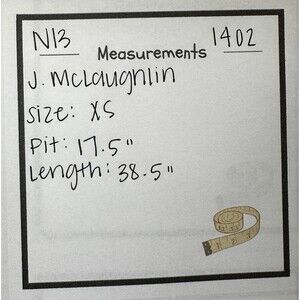 N13 1402
Measurements
J. McLaughlin
Size: XS
Pit: 17.5"
Length: 38.5"